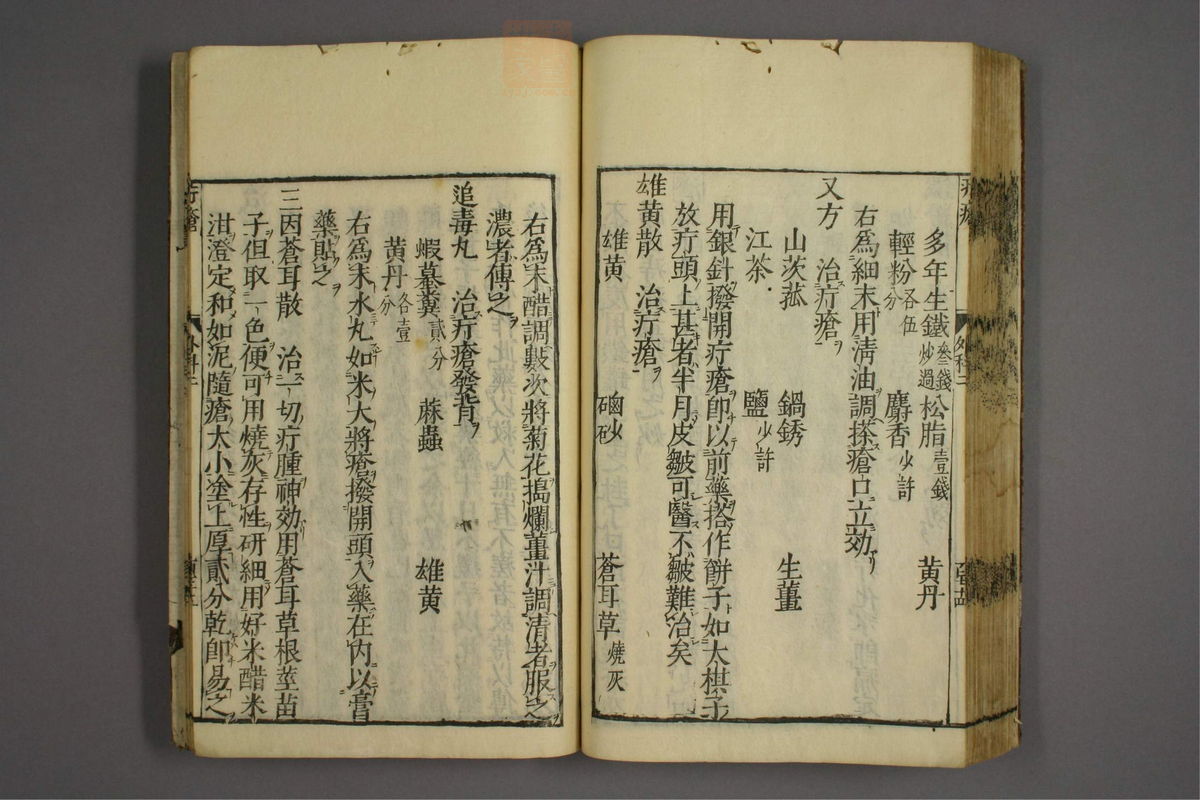 多年生鐵 叁錢 炒過 松脂 壹錢 黃丹
輕粉 各伍分 麝香 少許
右爲細末用淸油調搽瘡口立効
又方 治疔瘡
山茨菰 鍋銹 生薑
江茶 鹽 少許
用銀針撥開疔瘡卽以前藥搭作餠子如大棋子
放疔頭上甚者半月皮皺可醫不皺難治矣
雄黃散 治疔瘡
雄黃 硇砂 蒼耳草 燒灰
右爲末醋調數次將菊花搗爛薑汁調清者服之
濃者傅之
追毒丸 治疔瘡發背
蝦蟇糞 貳分 蔴蟲 雄黃
黃丹 各壹分
右爲末水丸如米大將瘡撥開頭入藥在內以膏
藥貼之
三因蒼耳散 治一切疔腫神効用蒼耳草根莖苗
子但取一色便可用燒灰存性研細用好米醋米
泔澄定和如泥隨瘡大小塗上厚貳分乾卽易之